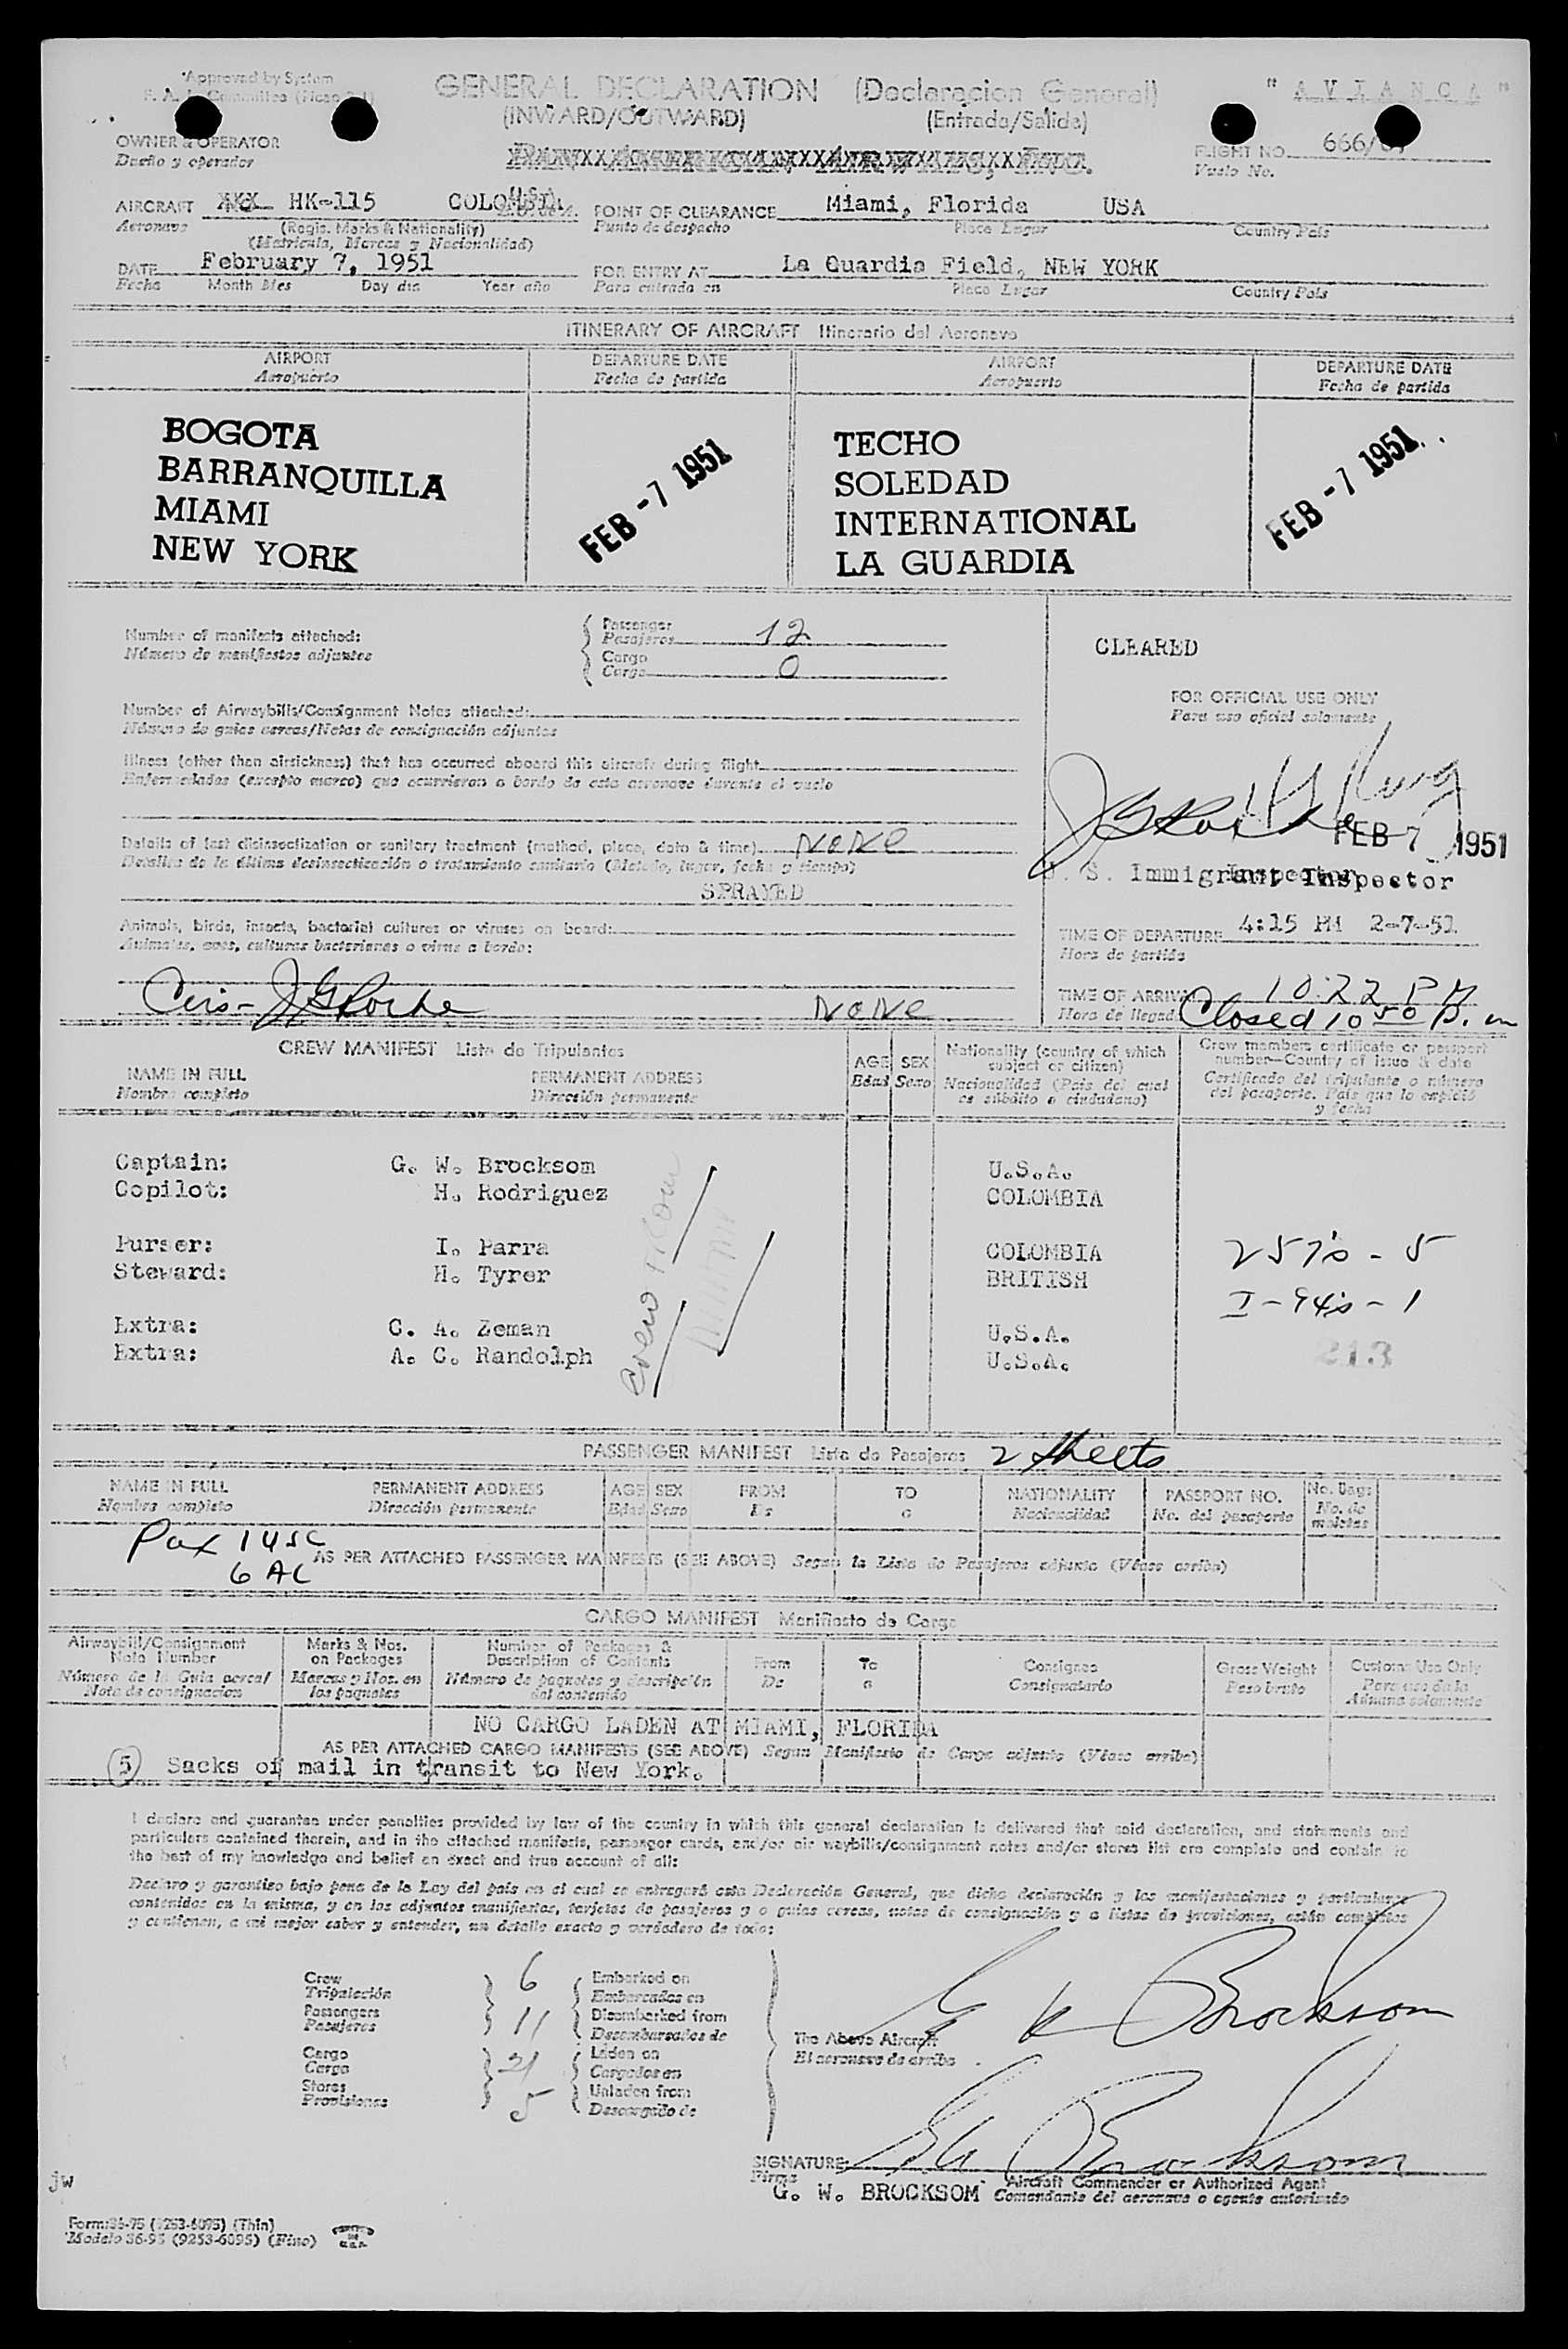 Approved by System
F. A. L. Committee
GENERAL DECLARATION (Declaracion General)
" A V I A N C A "
(INWARD/OUTWARD) (Entrada/Salida)
OWNER & OPERATOR
Dueño y operador
PAN AMERICAN AIRWAYS, INC.
FLIGHT NO. 666/
Vuelo No.
AIRCRAFT HK-115 COLOMBIA
Aeronave (Regis. Marks & Nationality)
(Matrícula, Marcas y Nacionalidad)
POINT OF CLEARANCE Miami, Florida USA
Punto de despacho Place Lugar Country País
DATE February 7, 1951
Fecha Month Mes Day día Year año
FOR ENTRY AT La Guardia Field, NEW YORK
Para entrada en Place Lugar Country País
ITINERARY OF AIRCRAFT Itinerario del Aeronave
AIRPORT DEPARTURE DATE AIRPORT DEPARTURE DATE
Aeropuerto Fecha de partida Aeropuerto Fecha de partida
BOGOTA TECHO
BARRANQUILLA SOLEDAD
MIAMI INTERNATIONAL
NEW YORK LA GUARDIA
FEB -7 1951 FEB -7 1951
Number of manifests attached:
Número de manifiestos adjuntos
Passenger
Pasajeros 12
Cargo
Carga 0
CLEARED
FOR OFFICIAL USE ONLY
Para uso oficial solamente
Number of Airwaybills/Consignment Notes attached:
Número de guías aereas/Notas de consignación adjuntas
Illness (other than airsickness) that has occurred aboard this aircraft during flight
Enfermedades (excepto mareo) que ocurrieron a bordo de esta aeronave durante el vuelo
FEB 7 1951
Details of last disinsectization or sanitary treatment (method, place, date & time) NONE
Detalles de la última desinsectización o tratamiento sanitario (Método, lugar, fecha y tiempo)
SPRAYED
S. Immigrant Inspector
Animals, birds, insects, bacterial cultures or viruses on board:
Animales, aves, culturas bacterianas o virus a bordo:
TIME OF DEPARTURE 4:15 PM 2-7-51
Hora de partida
NONE
TIME OF ARRIVAL 10:22 PM
Hora de llegada Closed 10 50 P. m
CREW MANIFEST Lista de Tripulantes
NAME IN FULL PERMANENT ADDRESS
Nombre completo Dirección permanente
AGE SEX
Edad Sexo
Nationality (country of which
subject or citizen)
Nacionalidad (País del cual
es súbdito o ciudadano)
Crew members certificate or passport
number—Country of issue & date
Certificado del tripulante o número
del pasaporte. País que lo expidió
y fecha
Captain: G. W. Brocksom U.S.A.
Copilot: H. Rodriguez COLOMBIA
Purser: I. Parra COLOMBIA
Steward: H. Tyrer BRITISH
Extra: C. A. Zeman U.S.A.
Extra: A. C. Randolph U.S.A.
257's - 5
I-94's - 1
213
PASSENGER MANIFEST Lista de Pasajeros 2 sheets
NAME IN FULL PERMANENT ADDRESS AGE SEX FROM TO NATIONALITY PASSPORT NO. No. Bags
Nombre completo Dirección permanente Edad Sexo De a Nacionalidad No. del pasaporte No. de maletas
Pax 14 SC
6 AC
AS PER ATTACHED PASSENGER MANIFESTS (SEE ABOVE) Segun la Lista de Pasajeros adjunta (Véase arriba)
CARGO MANIFEST Manifiesto de Carga
Airwaybill/Consignment
Note Number
Número de la Guía aerea/
Nota de consignacion
Marks & Nos.
on Packages
Marcas y Nos. en
los paquetes
Number of Packages &
Description of Contents
Número de paquetes y descripción
del contenido
From
De
To
a
Consignee
Consignatario
Gross Weight
Peso bruto
Customs Use Only
Para uso de la
Aduana solamente
NO CARGO LADEN AT MIAMI, FLORIDA
AS PER ATTACHED CARGO MANIFESTS (SEE ABOVE) Segun Manifiesto de Carga adjunto (Véase arriba)
5 Sacks of mail in transit to New York.
I declare and guarantee under penalties provided by law of the country in which this general declaration is delivered that said declaration, and statements and
particulars contained therein, and in the attached manifests, passenger cards, and/or air waybills/consignment notes and/or stores list are complete and contain to
the best of my knowledge and belief an exact and true account of all:
Declaro y garantizo bajo pena de la Ley del país en el cual se entregará esta Declaración General, que dicha declaración y las manifestaciones y particulares
contenidos en la misma, y en los adjuntos manifiestos, tarjetas de pasajeros y o guías aereas, notas de consignación y o listas de provisiones, están completas
y contienen, a mi mejor saber y entender, un detalle exacto y verdadero de todo:
Crew 6 Embarked on
Tripulación Embarcados en
Passengers 11 Disembarked from
Pasajeros Desembarcados de
Cargo Laden on
Carga Cargados en
Stores 5 Unladen from
Provisiones Descargado de
The Above Aircraft
El aeronave de arriba
G W Brocksom
SIGNATURE G W Brocksom
Firma
G. W. BROCKSOM Aircraft Commander or Authorized Agent
Comandante del aeronave o agente autorizado
jw
Form:36-95 (9253-6095) (Thin)
Modelo 36-95 (9253-6095) (Fino)